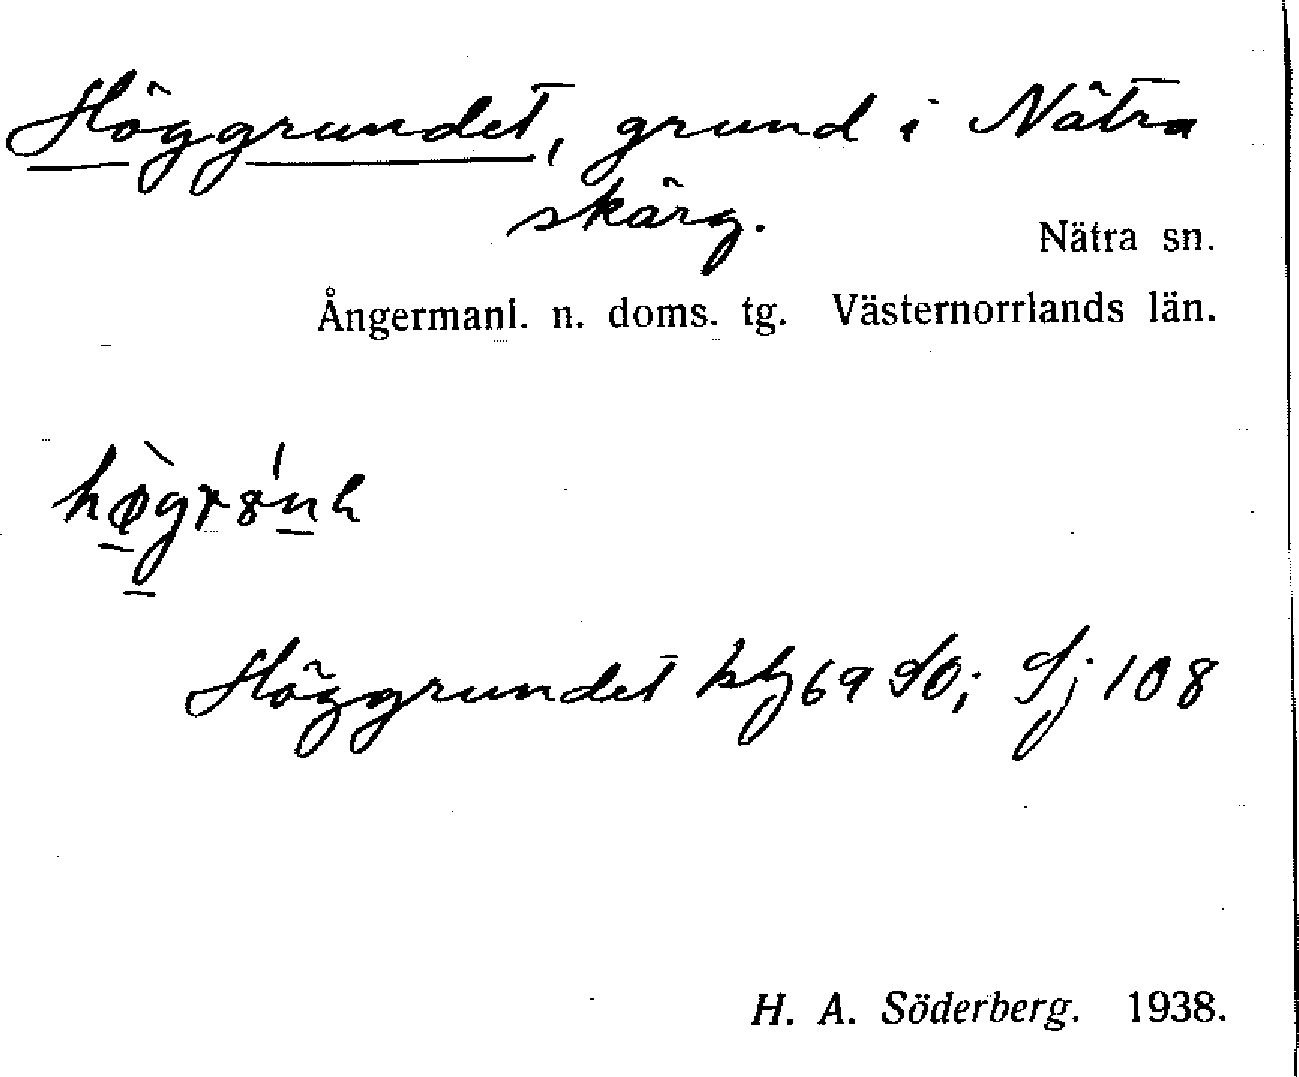 Höggrundet, grund i Nätra
skärg.
Nätra sn.
Ångermanl. n. doms. tg. Västernorrlands län.
Höggrundet kbl 69 SO; Sj 108
H. A. Söderberg. 1938.